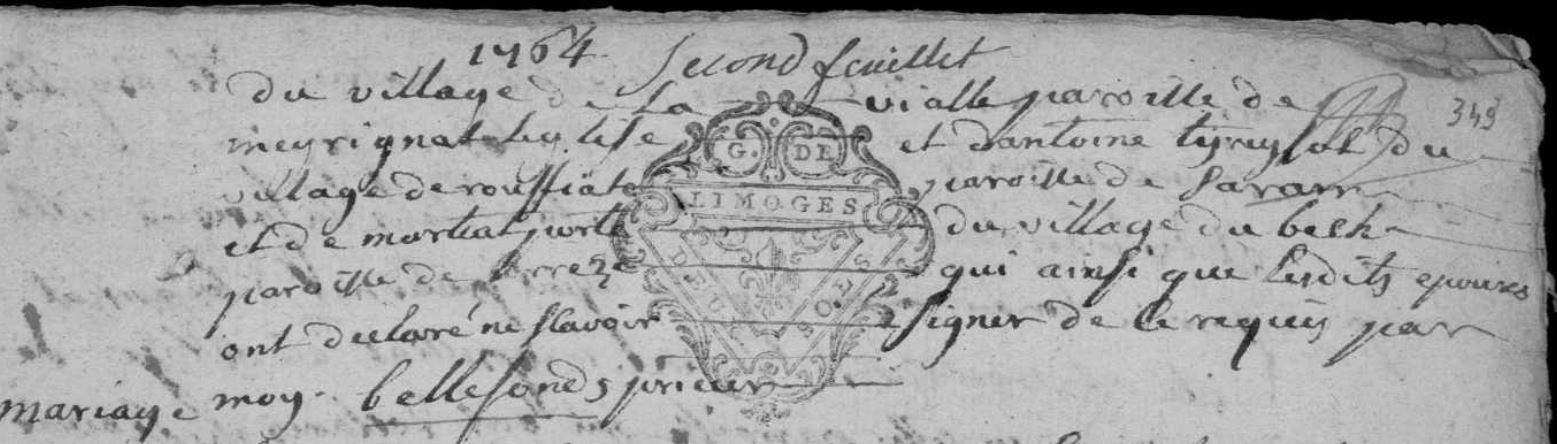 1764 Second feuillet
du village de la vialle paroisse de
349
meyrignat les lise et d'antoine du
village de rouffiate paroisse de Saran
et de martial porte du village du bech
paroisse de Correze qui ainsi que lesdits epouxs
ont declaré ne sçavoir signer de ce requis par
mariage moy. bellefonds prieur
G. DE
LIMOGES
DEUX SOLS